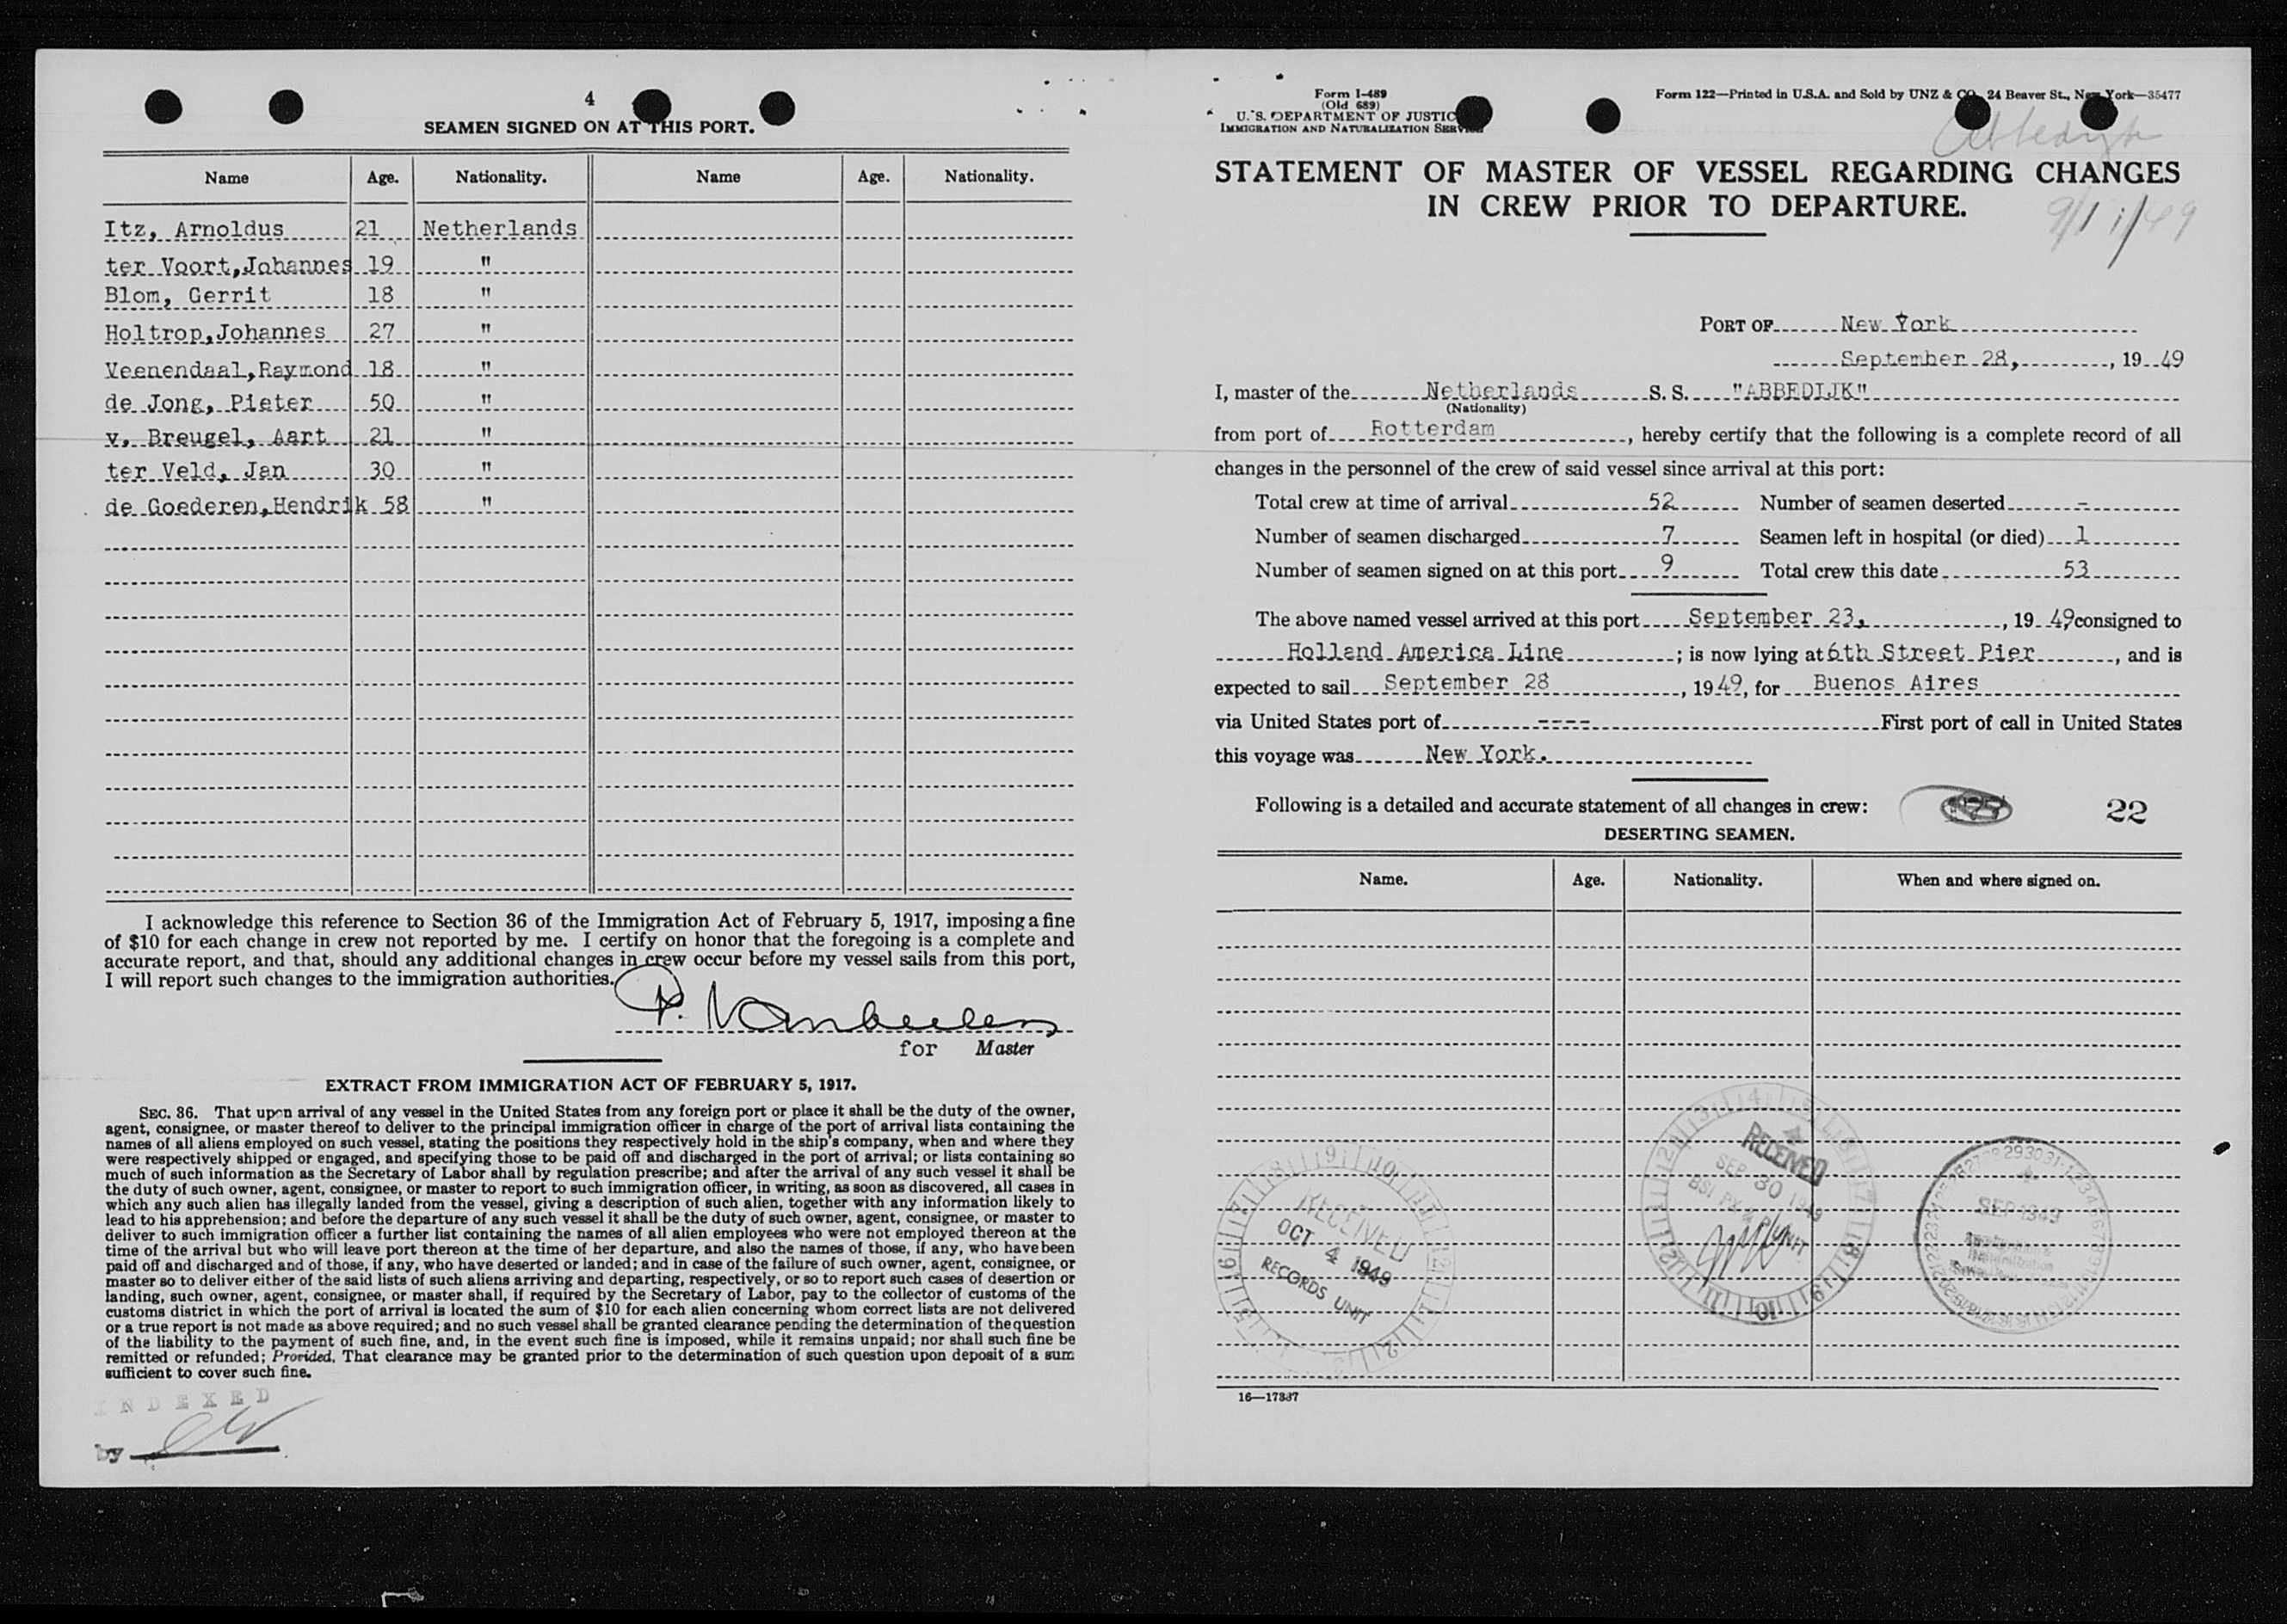 4
SEAMEN SIGNED ON AT THIS PORT.
Name Age. Nationality. Name Age. Nationality.
Itz, Arnoldus 21 Netherlands
ter Voort, Johannes 19 "
Blom, Gerrit 18 "
Holtrop, Johannes 27 "
Veenendaal, Raymond 18 "
de Jong, Pieter 50 "
v. Breugel, Aart 21 "
ter Veld, Jan 30 "
de Goederen, Hendrik 58 "
I acknowledge this reference to Section 36 of the Immigration Act of February 5, 1917, imposing a fine
of $10 for each change in crew not reported by me. I certify on honor that the foregoing is a complete and
accurate report, and that, should any additional changes in crew occur before my vessel sails from this port,
I will report such changes to the immigration authorities.
for Master
EXTRACT FROM IMMIGRATION ACT OF FEBRUARY 5, 1917.
SEC. 36. That upon arrival of any vessel in the United States from any foreign port or place it shall be the duty of the owner,
agent, consignee, or master thereof to deliver to the principal immigration officer in charge of the port of arrival lists containing the
names of all aliens employed on such vessel, stating the positions they respectively hold in the ship's company, when and where they
were respectively shipped or engaged, and specifying those to be paid off and discharged in the port of arrival; or lists containing so
much of such information as the Secretary of Labor shall by regulation prescribe; and after the arrival of any such vessel it shall be
the duty of such owner, agent, consignee, or master to report to such immigration officer, in writing, as soon as discovered, all cases in
which any such alien has illegally landed from the vessel, giving a description of such alien, together with any information likely to
lead to his apprehension; and before the departure of any such vessel it shall be the duty of such owner, agent, consignee, or master to
deliver to such immigration officer a further list containing the names of all alien employees who were not employed thereon at the
time of the arrival but who will leave port thereon at the time of her departure, and also the names of those, if any, who have been
paid off and discharged and of those, if any, who have deserted or landed; and in case of the failure of such owner, agent, consignee, or
master so to deliver either of the said lists of such aliens arriving and departing, respectively, or so to report such cases of desertion or
landing, such owner, agent, consignee, or master shall, if required by the Secretary of Labor, pay to the collector of customs of the
customs district in which the port of arrival is located the sum of $10 for each alien concerning whom correct lists are not delivered
or a true report is not made as above required; and no such vessel shall be granted clearance pending the determination of the question
of the liability to the payment of such fine, and, in the event such fine is imposed, while it remains unpaid; nor shall such fine be
remitted or refunded; Provided, That clearance may be granted prior to the determination of such question upon deposit of a sum
sufficient to cover such fine.
INDEXED
by
Form I-489
(Old 689)
U. S. DEPARTMENT OF JUSTICE
IMMIGRATION AND NATURALIZATION SERVICE
Form 122—Printed in U.S.A. and Sold by UNZ & CO., 24 Beaver St., New York—35477
STATEMENT OF MASTER OF VESSEL REGARDING CHANGES
IN CREW PRIOR TO DEPARTURE.
PORT OF New York
September 28, , 19 49
I, master of the Netherlands S. S. "ABBEDIJK"
(Nationality)
from port of Rotterdam , hereby certify that the following is a complete record of all
changes in the personnel of the crew of said vessel since arrival at this port:
Total crew at time of arrival 52 Number of seamen deserted -
Number of seamen discharged 7 Seamen left in hospital (or died) 1
Number of seamen signed on at this port 9 Total crew this date 53
The above named vessel arrived at this port September 23, , 19 49 consigned to
Holland America Line ; is now lying at 6th Street Pier , and is
expected to sail September 28 , 19 49, for Buenos Aires
via United States port of ---- First port of call in United States
this voyage was New York.
Following is a detailed and accurate statement of all changes in crew:
22
DESERTING SEAMEN.
Name. Age. Nationality. When and where signed on.
RECEIVED
OCT 4 1949
RECORDS UNIT
RECEIVED
SEP 30 1949
UNIT
SEP 1949
16—17337